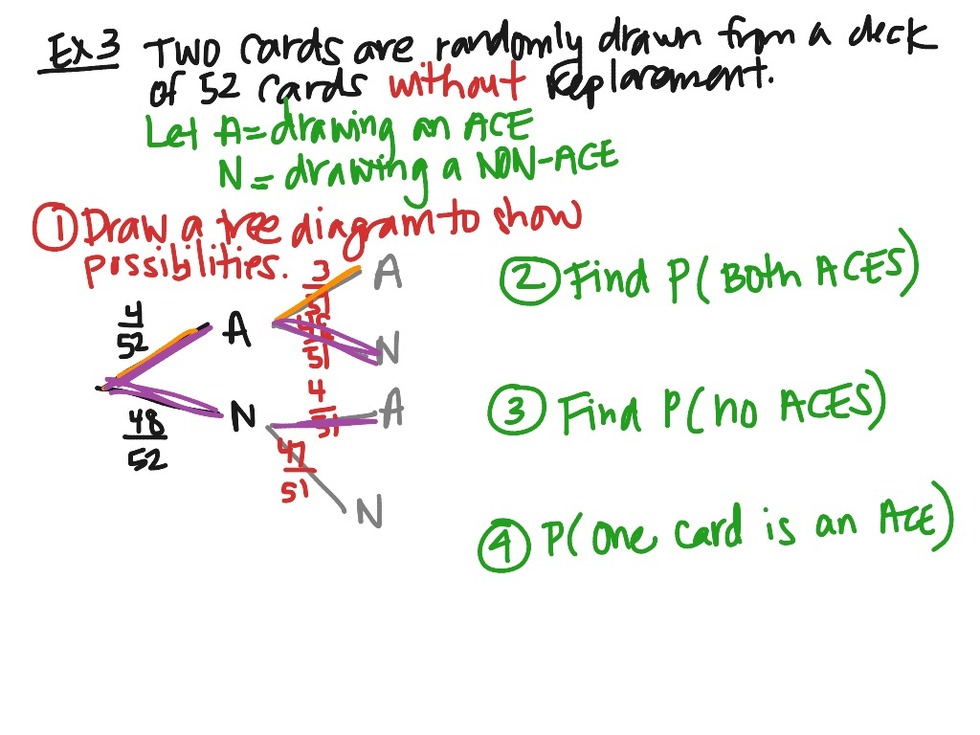 Ex 3 Two cards are randomly drawn from a deck
of 52 cards without replacement.
Let A = drawing an ACE
N = drawing a NON-ACE
① Draw a tree diagram to show
possibilities.
② Find P(Both ACES)
③ Find P(no ACES)
④ P(one card is an ACE)
4/52 A
48/52 N
3/51 A
48/51 N
4/51 A
47/51 N